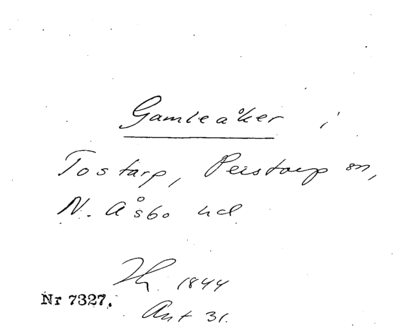 Gamleåker i
Tostarp, Perstorp sn,
N. Åsbo hd
Th. 1844
Nr 7327.
Ant 31.